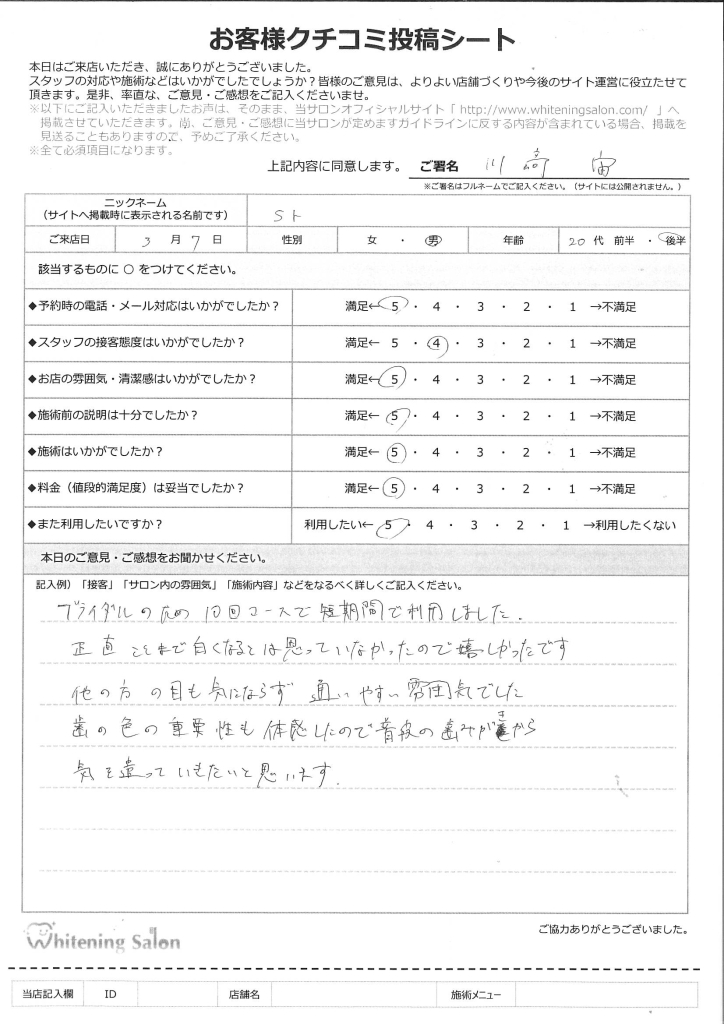 お客様クチコミ投稿シート
本日はご来店いただき、誠にありがとうございました。
スタッフの対応や施術などはいかがでしたでしょうか？皆様のご意見は、よりよい店舗づくりや今後のサイト運営に役立たせて
頂きます。是非、率直な、ご意見・ご感想をご記入くださいませ。
※以下にご記入いただきましたお声は、そのまま、当サロンオフィシャルサイト「 http://www.whiteningsalon.com/ 」へ
掲載させていただきます。尚、ご意見・ご感想に当サロンが定めますガイドラインに反する内容が含まれている場合、掲載を
見送ることもありますので、予めご了承ください。
※全て必須項目になります。
上記内容に同意します。 ご署名 川崎 宙
※ご署名はフルネームでご記入ください。（サイトには公開されません。）
ニックネーム
（サイトへ掲載時に表示される名前です） S t
ご来店日 3 月 7 日 性別 女 ・ 男 年齢 20 代 前半 ・ 後半
該当するものに ○ をつけてください。
◆予約時の電話・メール対応はいかがでしたか？ 満足← 5 ・ 4 ・ 3 ・ 2 ・ 1 →不満足
◆スタッフの接客態度はいかがでしたか？ 満足← 5 ・ 4 ・ 3 ・ 2 ・ 1 →不満足
◆お店の雰囲気・清潔感はいかがでしたか？ 満足← 5 ・ 4 ・ 3 ・ 2 ・ 1 →不満足
◆施術前の説明は十分でしたか？ 満足← 5 ・ 4 ・ 3 ・ 2 ・ 1 →不満足
◆施術はいかがでしたか？ 満足← 5 ・ 4 ・ 3 ・ 2 ・ 1 →不満足
◆料金（値段的満足度）は妥当でしたか？ 満足← 5 ・ 4 ・ 3 ・ 2 ・ 1 →不満足
◆また利用したいですか？ 利用したい← 5 ・ 4 ・ 3 ・ 2 ・ 1 →利用したくない
本日のご意見・ご感想をお聞かせください。
記入例）「接客」「サロン内の雰囲気」「施術内容」などをなるべく詳しくご記入ください。
ブライダルのため 10回コースで短期間で利用しました.
正直 ここまで白くなるとは思っていなかったので嬉しかったです
他の方の目も気にならず 通いやすい雰囲気でした
歯の色の重要性も体感したので普段の歯みがきから
気を遣っていきたいと思います.
Whitening Salon
ご協力ありがとうございました。
当店記入欄 ID 店舗名 施術メニュー